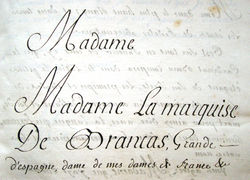 Madame
Madame La marquise
De Brancas, Grande
d'espagne, dame de mes dames, & france &